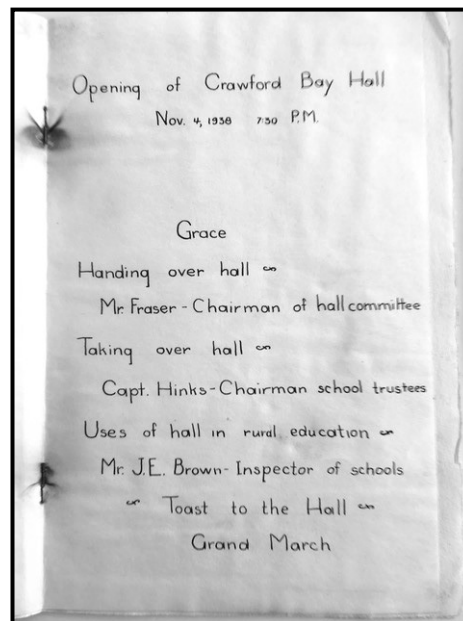 Opening of Crawford Bay Hall
Nov. 4, 1938 7:30 P.M.
Grace
Handing over hall
Mr. Fraser - Chairman of hall committee
Taking over hall
Capt. Hinks - Chairman school trustees
Uses of hall in rural education
Mr. J.E. Brown - Inspector of schools
Toast to the Hall
Grand March